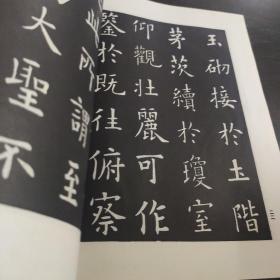 玉砌接於土階
茅茨續於瓊室
仰觀壯麗可作
鑒於既往俯察
所謂至
大聖不
二三